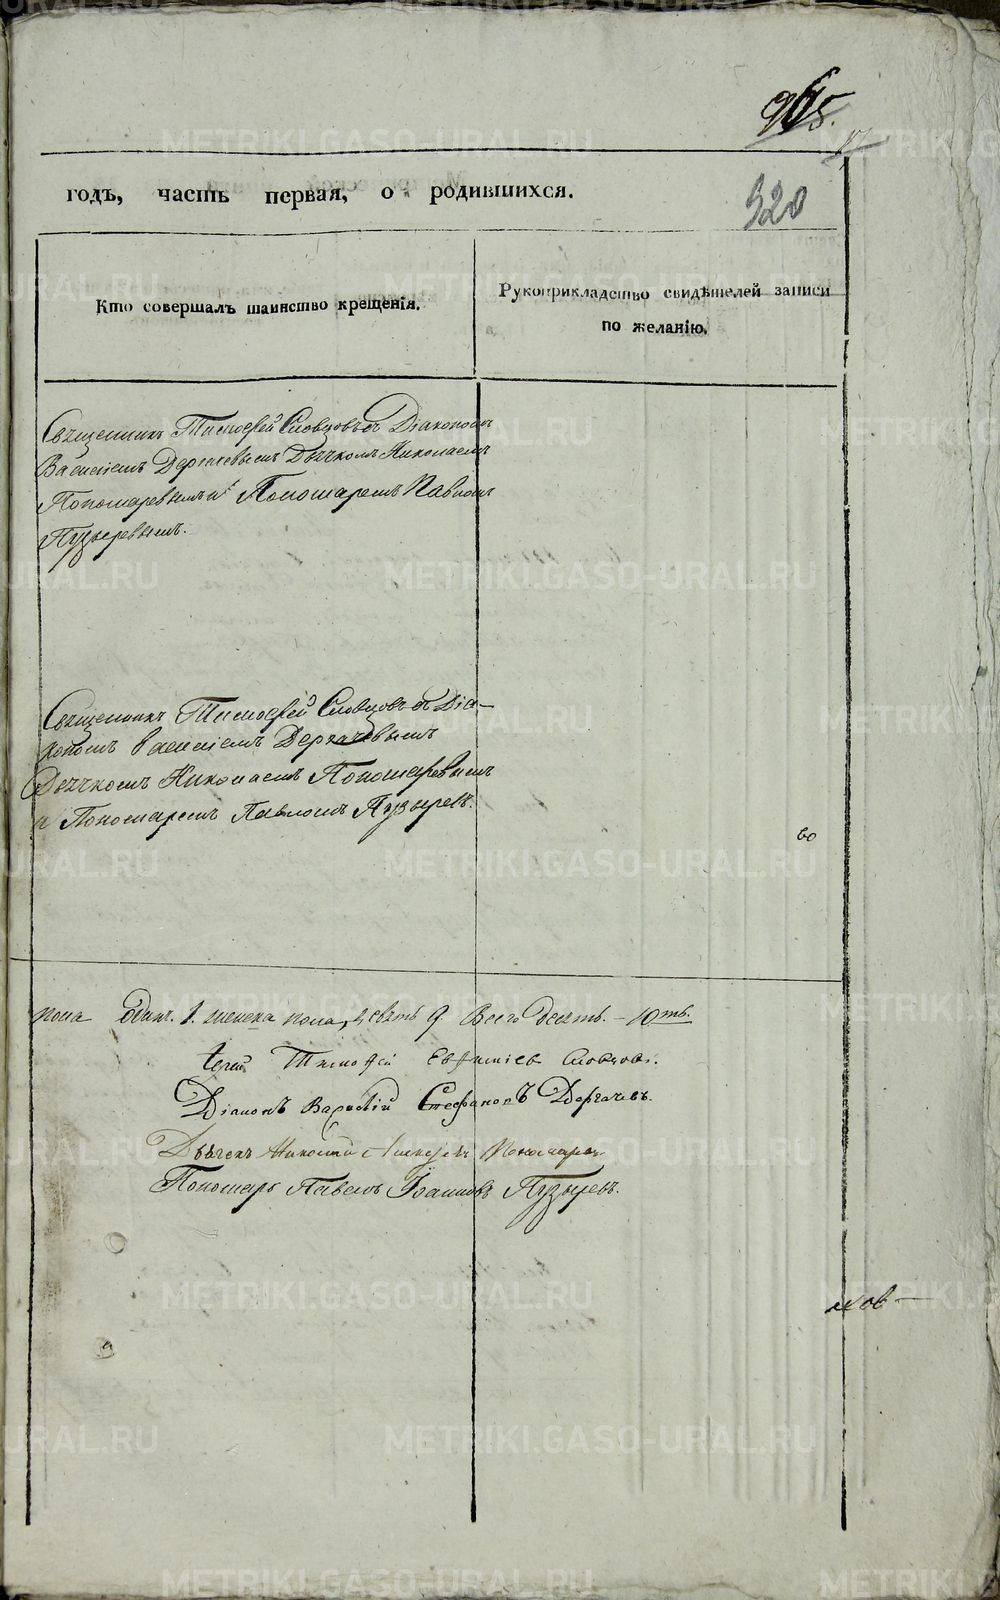 965.
320
годъ, часть первая, о родившихся.
Кто совершалъ таинство крещенія.
Рукоприкладство свидѣтелей записи
по желанію.
Священникъ Тимофей Словцовъ съ Діакономъ
Василіемъ Дергачевымъ Дьячкомъ Николаемъ
Пономаревымъ и Пономаремъ Павломъ
Пузыревымъ.
Священникъ Тимофей Словцовъ съ Діа-
кономъ Василіемъ Дергачевымъ
Дьячкомъ Николаемъ Пономаревымъ
и Пономаремъ Павломъ Пузыревъ.
во
пола Одинъ. 1. женска пола, девять 9. Всего десять. – 10ть.
Іерей Тимофей Евфиміев Словцовъ.
Діаконъ Василій Стефановъ Дергачевъ.
Дьячекъ Николай Пономарев
Пономарь Павелъ Іоанновъ Пузыревъ.
ков-
METRIKI.GASO-URAL.RU